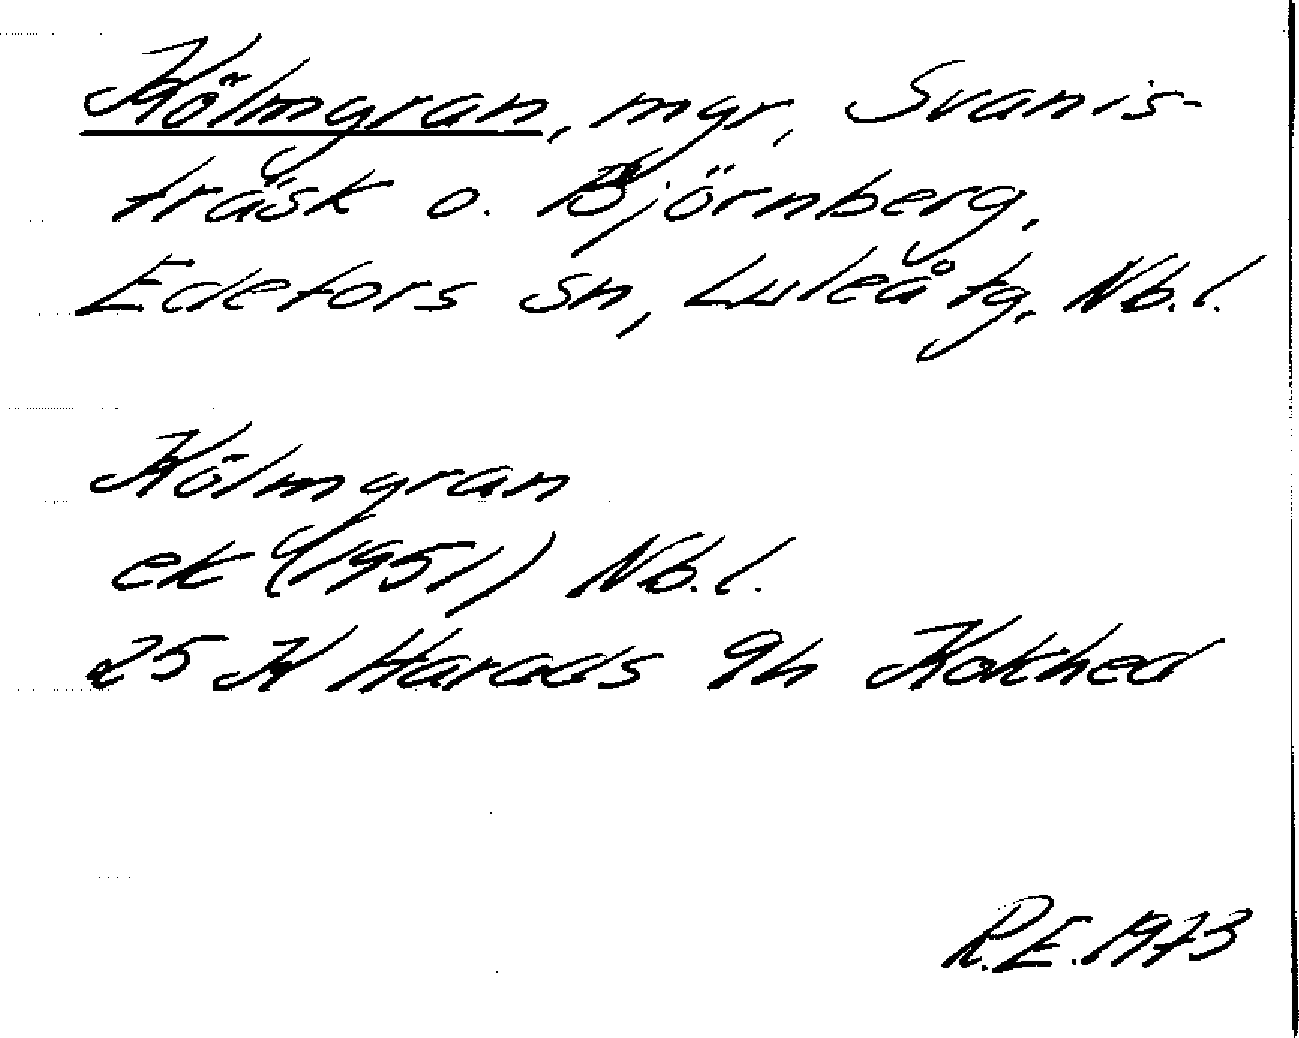 Kölmgran, mgr, Svanis-
träsk o. Björnberg,
Edefors sn, Luleå tg, Nb.l.
Kölmgran
ek (1951) Nb.l.
25 K Harads 9h Kokhed
R.E. 1973